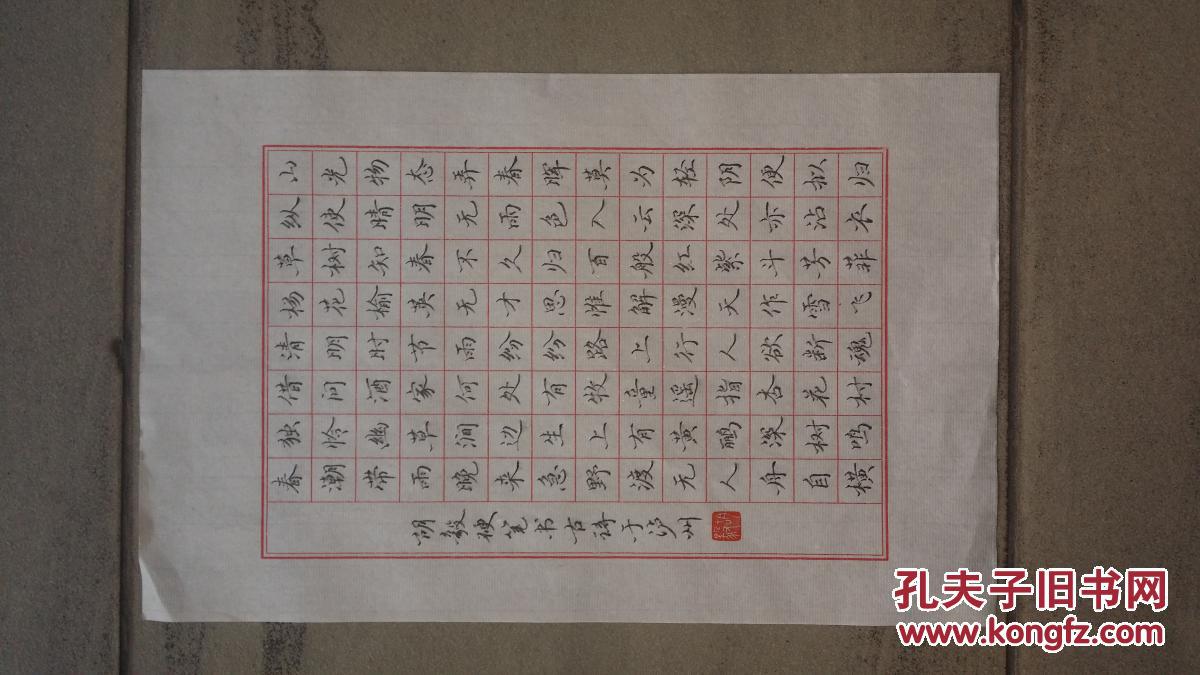 山光物态弄春晖莫为轻阴便拟归
纵使晴明无雨色入云深处亦沾衣
草树知春不久归百般红紫斗芳菲
杨花榆荚无才思惟解漫天作雪飞
清明时节雨纷纷路上行人欲断魂
借问酒家何处有牧童遥指杏花村
独怜幽草涧边生上有黄鹂深树鸣
春潮带雨晚来急野渡无人舟自横
胡毅硬笔书古诗于泸州
孔夫子旧书网
www.kongfz.com